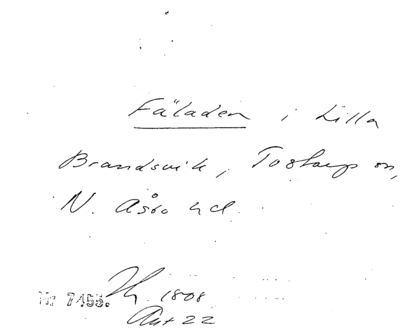 Fäladen i Lilla
Brandsvik, Tostarp sn,
N. Åsbo hd.
Nr 7455. 1808
Akt 22